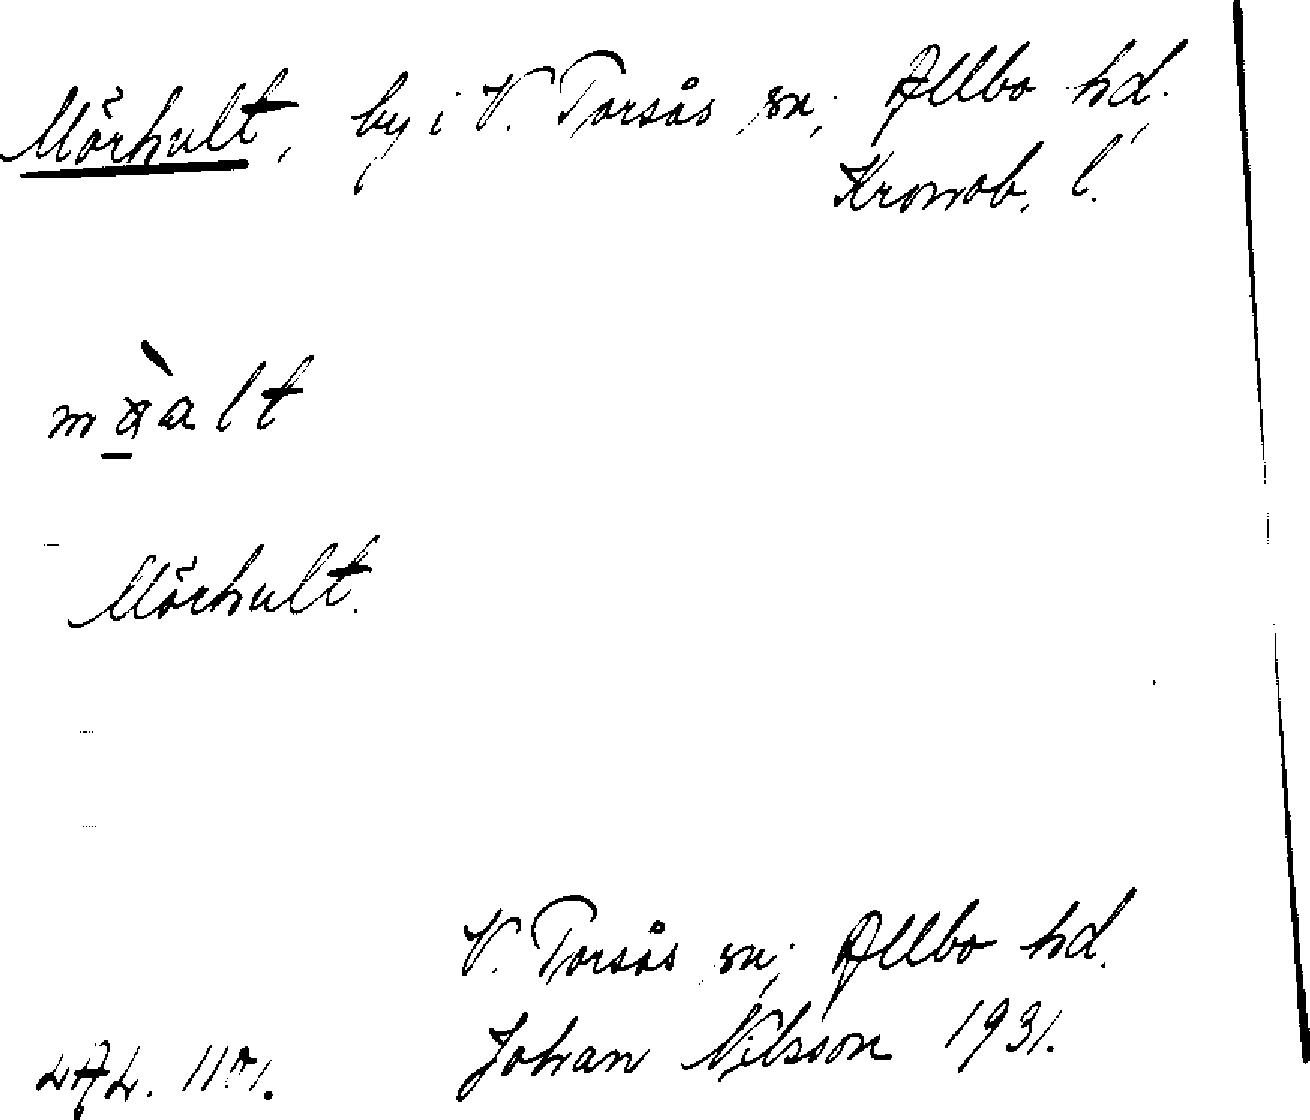 Mörhult, by i V. Torsås sn, Allbo hd.
Kronob. l.
Mörhult.
V. Torsås sn, Allbo hd.
Johan Nilsson 1931.
LAL.